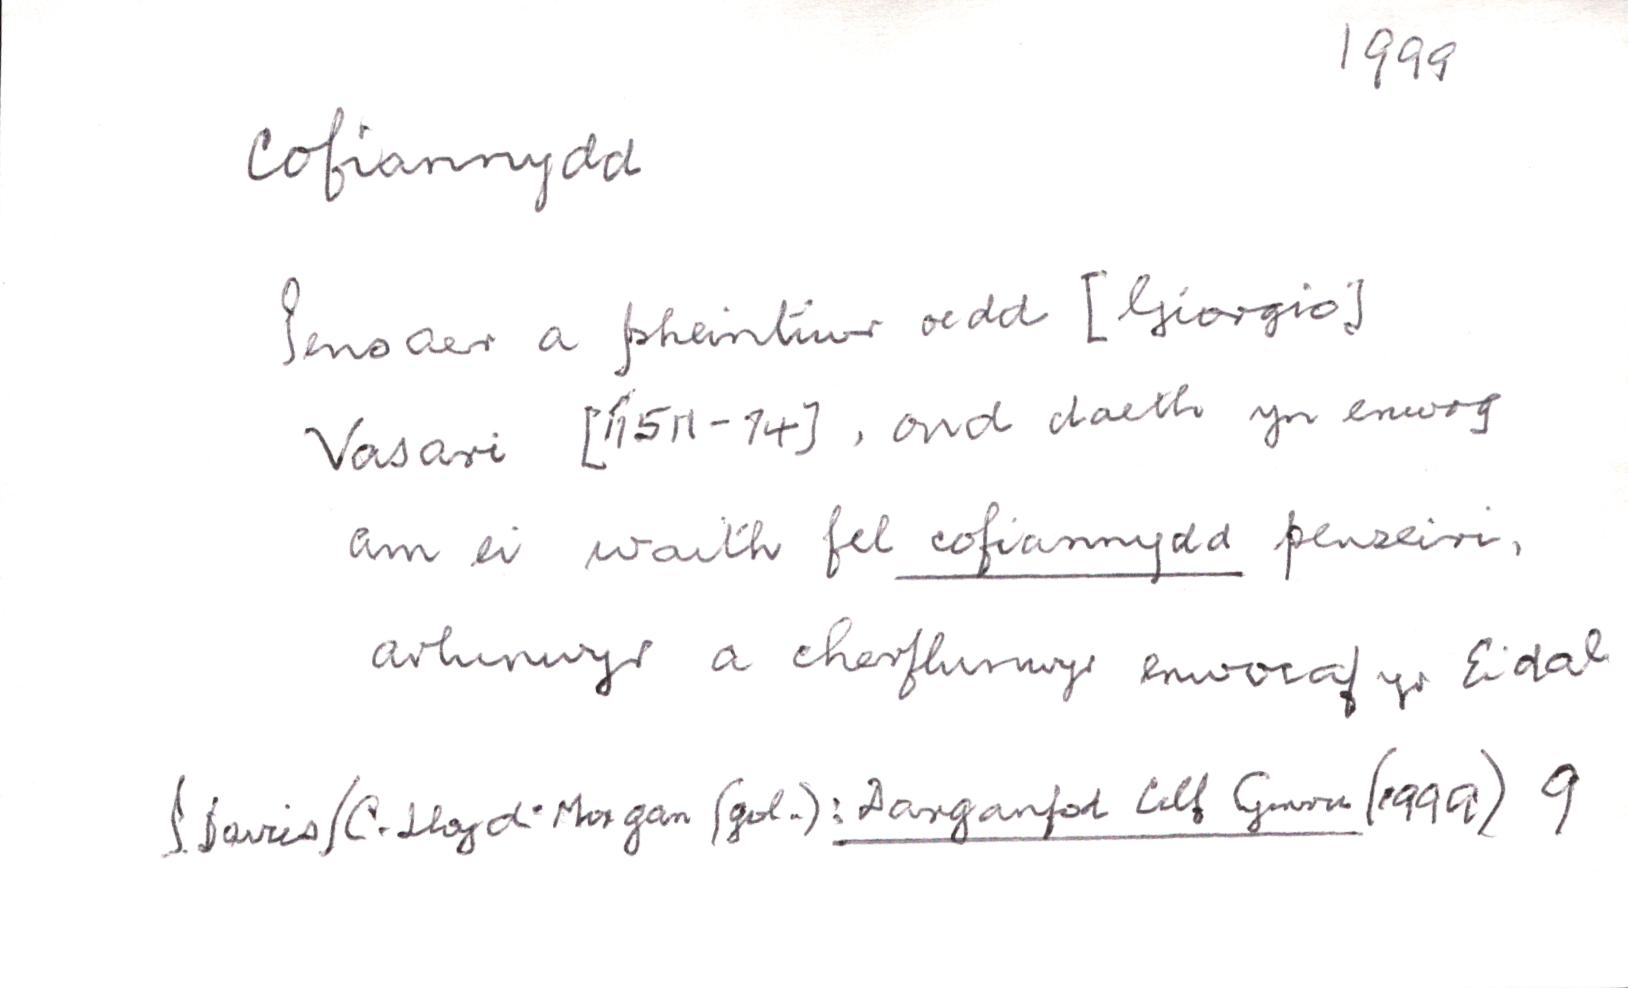 1999
Cofiannydd
Pensaer a pheintiwr oedd [Giorgio]
Vasari [1511-74], ond daeth yn enwog
am ei waith fel cofiannydd penseiri,
arlunwyr a cherflunwyr enwocaf yr Eidal
I Davies/C. Lloyd-Morgan (gol.): Darganfod Celf Cymru (1999) 9